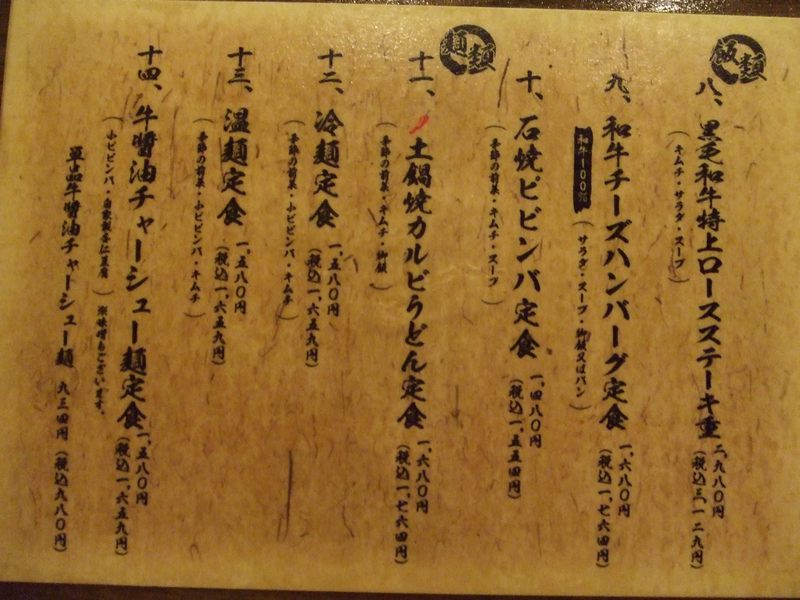 飯類
八、黒毛和牛特上ロースステーキ重 二、九八〇円
(キムチ・サラダ・スープ) (税込三、一二九円)
九、和牛チーズハンバーグ定食 一、六八〇円
和牛100% (サラダ・スープ・御飯又はパン) (税込一、七六四円)
十、石焼ビビンバ定食 一、四八〇円
(季節の前菜・キムチ・スープ) (税込一、五五四円)
麺類
十一、土鍋焼カルビうどん定食 一、六八〇円
(季節の前菜・キムチ・御飯) (税込一、七六四円)
十二、冷麺定食 一、五八〇円
(季節の前菜・小ビビンバ・キムチ) (税込一、六五九円)
十三、温麺定食 一、五八〇円
(季節の前菜・小ビビンバ・キムチ) (税込一、六五九円)
十四、牛醤油チャーシュー麺定食 一、五八〇円
(小ビビンバ・自家製杏仁豆腐) ※味噌もございます。 (税込一、六五九円)
単品牛醤油チャーシュー麺 九三四円 (税込九八〇円)